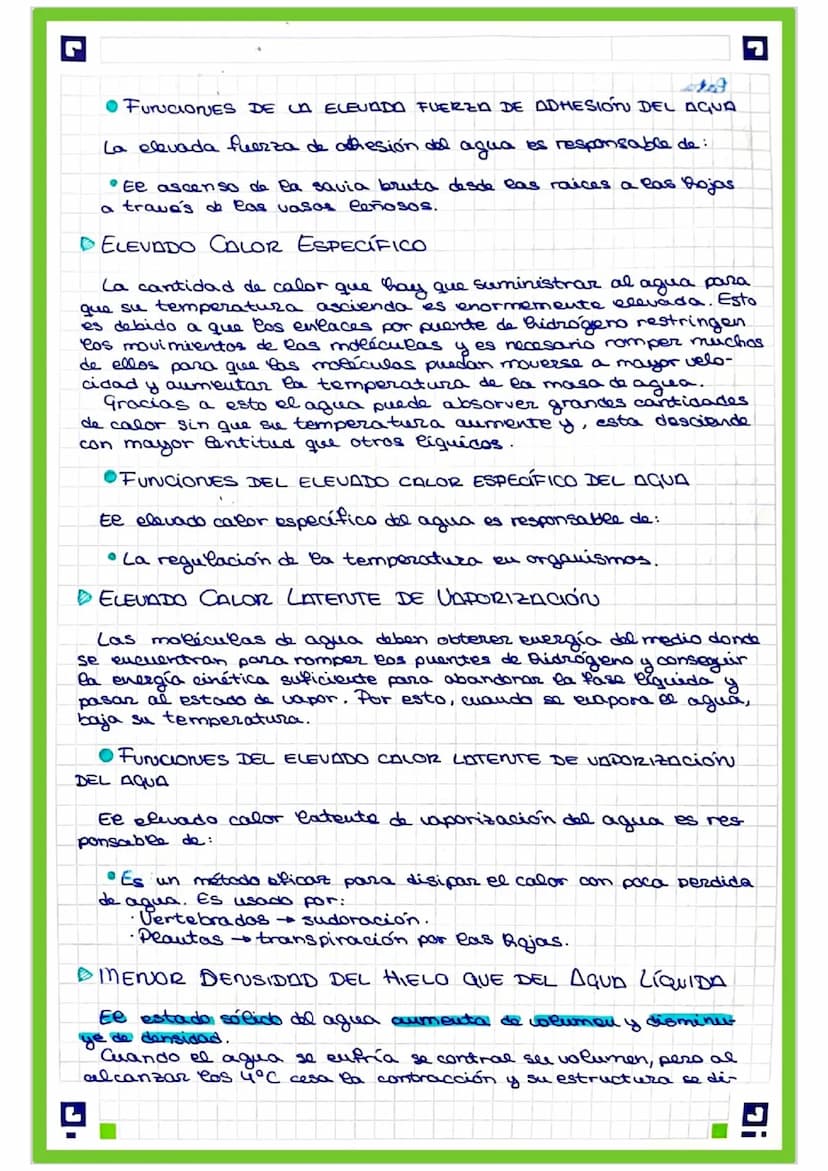 • FUNCIONES DE LA ELEVADA FUERZA DE ADHESIÓN DEL AGUA
La elevada fuerza de adhesión del agua es responsable de:
• El ascenso de la savia bruta desde las raíces a las hojas
a través de los vasos leñosos.
▷ ELEVADO CALOR ESPECÍFICO
La cantidad de calor que hay que suministrar al agua para
que su temperatura ascienda es enormemente elevada. Esto
es debido a que los enlaces por puente de hidrógeno restringen
los movimientos de las moléculas y es necesario romper muchos
de ellos para que las moléculas puedan moverse a mayor velo-
cidad y aumentar la temperatura de la masa de agua.
Gracias a esto el agua puede absorver grandes cantidades
de calor sin que su temperatura aumente y, esta desciende
con mayor lentitud que otros líquidos.
• FUNCIONES DEL ELEVADO CALOR ESPECÍFICO DEL AGUA
El elevado calor específico del agua es responsable de:
• La regulación de la temperatura en organismos.
▷ ELEVADO CALOR LATENTE DE VAPORIZACIÓN
Las moléculas de agua deben obtener energía del medio donde
se encuentran para romper los puentes de hidrógeno y conseguir
la energía cinética suficiente para abandonar la fase líquida y
pasar al estado de vapor. Por esto, cuando se evapora el agua,
baja su temperatura.
• FUNCIONES DEL ELEVADO CALOR LATENTE DE VAPORIZACIÓN
DEL AGUA
El elevado calor latente de vaporización del agua es res-
ponsable de:
• Es un método eficaz para disipar el calor con poca perdida
de agua. Es usado por:
· Vertebrados → sudoración.
· Plantas → transpiración por las hojas.
▷ MENOR DENSIDAD DEL HIELO QUE DEL AGUA LÍQUIDA
El estado sólido del agua aumenta de volumen y disminu-
ye de densidad.
Cuando el agua se enfría se contrae su volumen, pero al
alcanzar los 4°C cesa la contracción y su estructura se di-